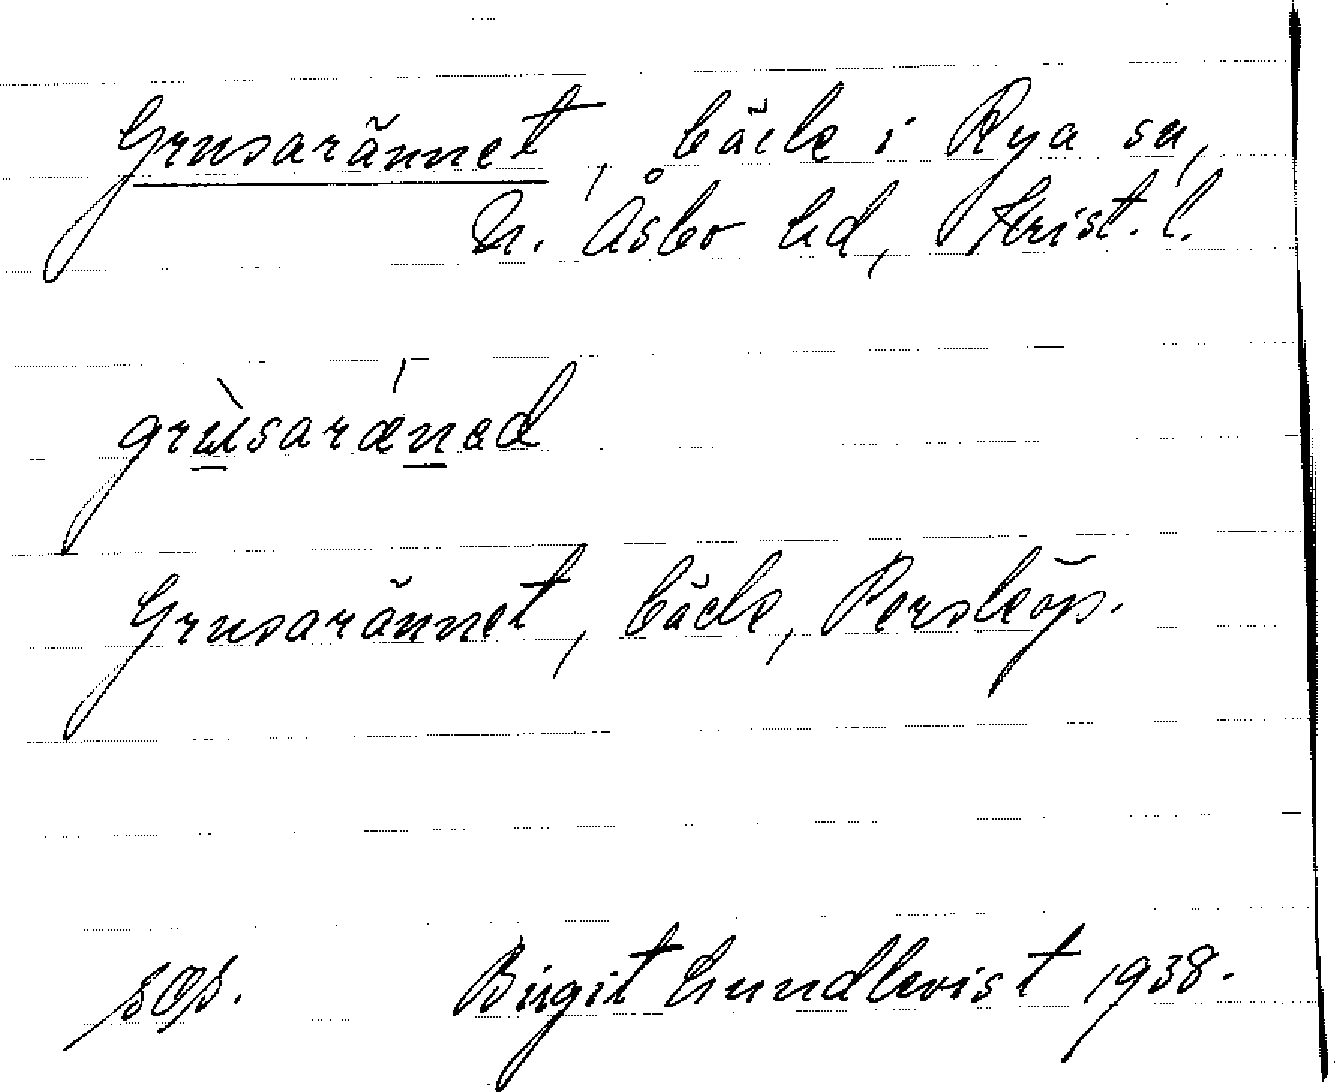 Grusarännet, bäck i Rya sn,
N. Åsbo hd, Krist. l.
grùsarǽnəd
Grusarännet, bäck, Persköp.
Birgit Lundkvist 1938.